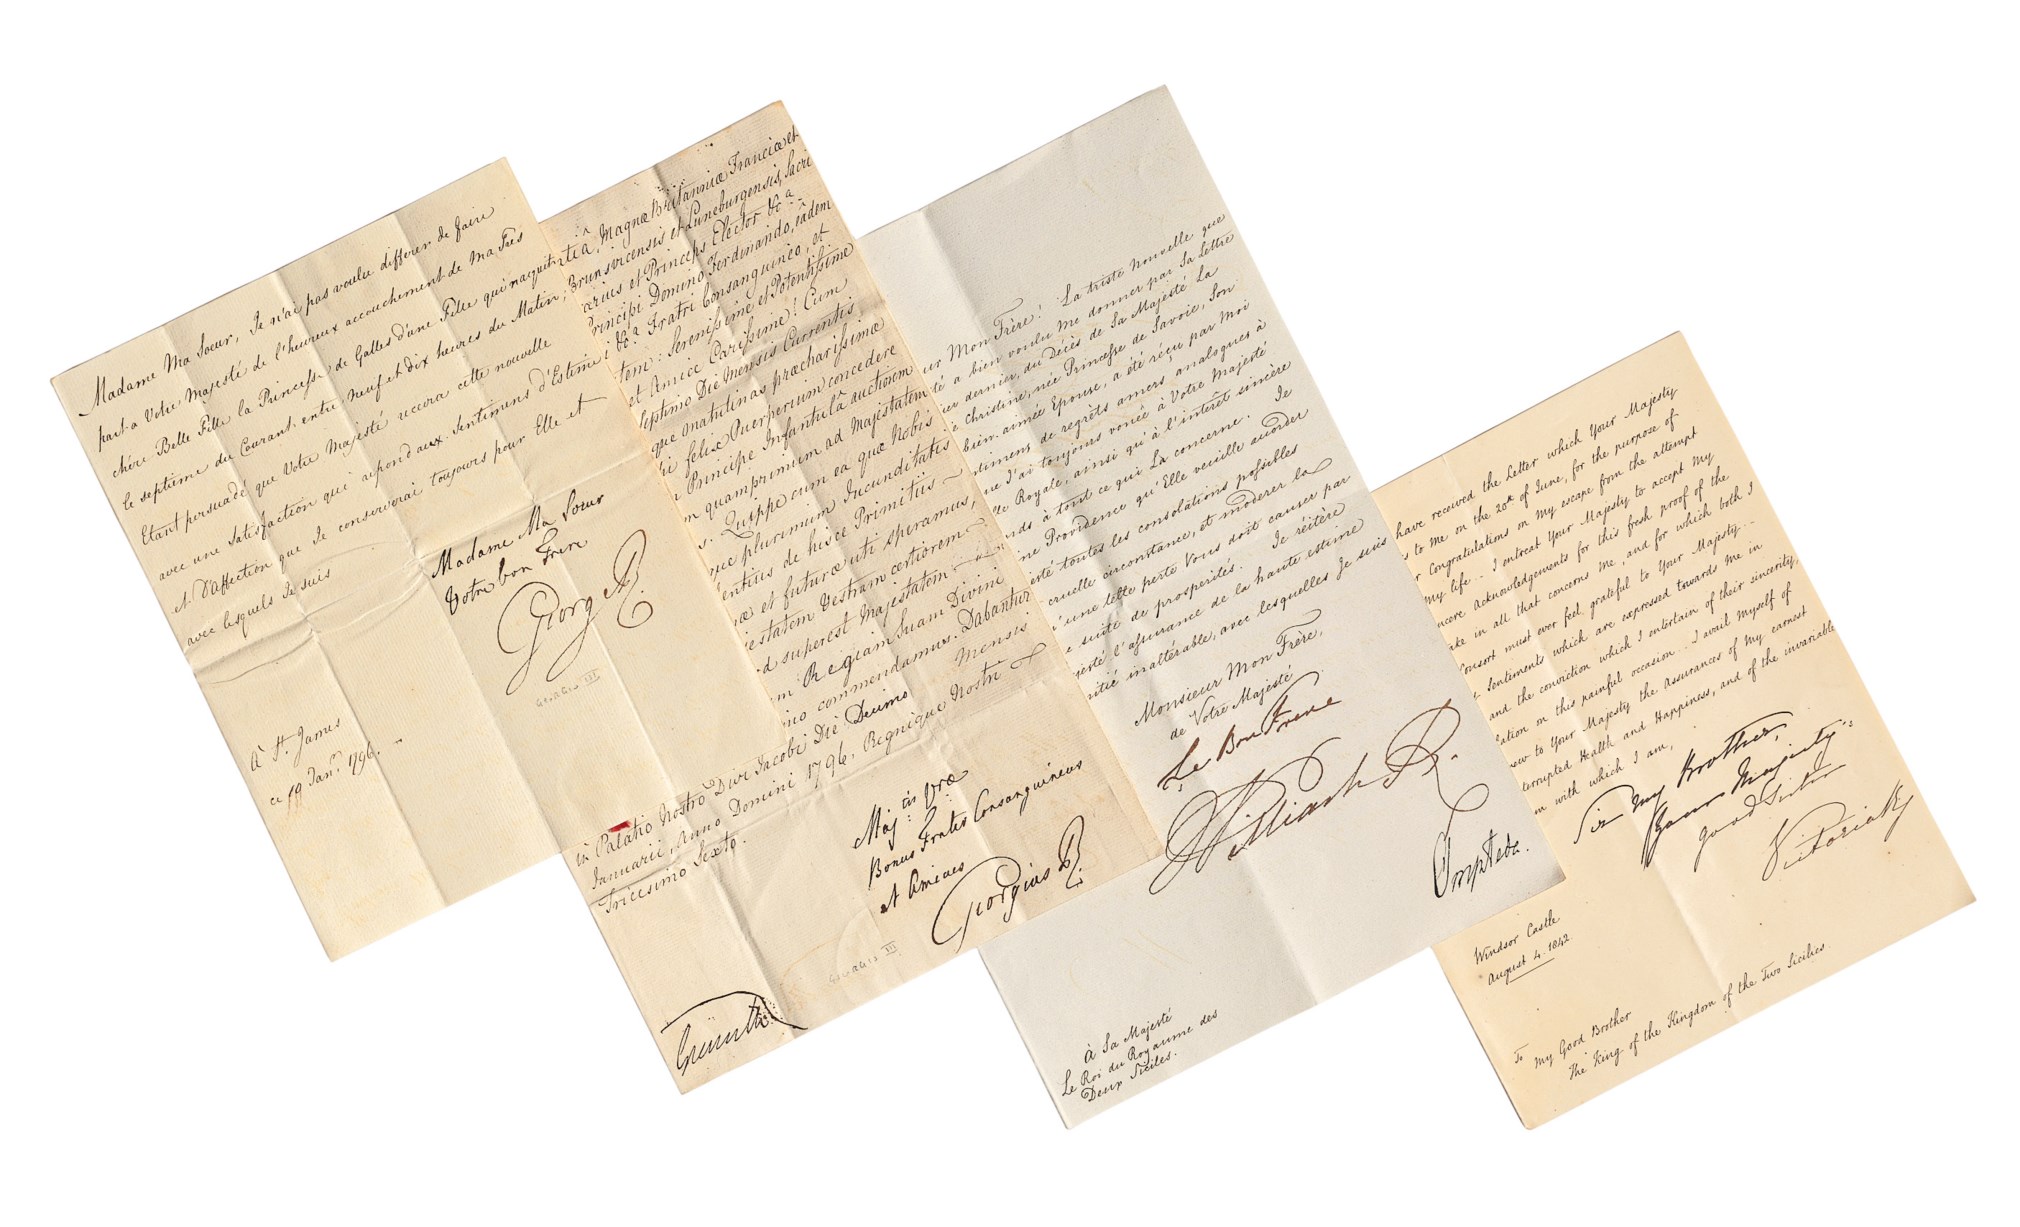 Madame Ma Soeur, Je n'ai pas voulu differer de faire
part a Votre Majesté de l'heureux accouchement de ma Très
chére Belle Fille la Princesse de Galles d'une Fille qui naquit
le septième du Courant entre Neuf et dix heures du Matin,
Etant persuadé que Votre Majesté recevra cette nouvelle
avec une Satisfaction qui répond aux Sentimens d'Estime
et D'affection que Je conserverai toujours pour Elle et
avec lesquels Je suis
Madame Ma Soeur
Votre bon Frere
George R.
GEORGIS III
À St. James
ce 19 Janr. 1796.
tiâ, Magnæ Britanniæ Franciæ et
Brunsvicensis et Luneburgensis, Sacri
arius et Princeps Elector &c.a
Principi Domino Ferdinando, eâdem
i &c.a Fratri Consanguineo, et
tem: Serenissime et Potentissime
et Amice Carissime! Cum
Septimo Die Mensis Currentis
que matutinas præcharissimæ
ri felix Puerperium concedere
Principe Infantulâ auctiorem
m quamprimum ad Majestatem
s. Quippe cum ea quæ Nobis
ue plurimum Jucunditatis
entius de hisce Primitiis
æ et futuræ uti speramus,
jestatem Vestram certiorem
d superest Majestatem
m Regiam Suam Divini
imo commendamus. Dabantur
in Palatio Nostro Divi Jacobi Die Decimo Mensis
Januarii, Anno Domini 1796, Regnique Nostri
Tricesimo Sexto.
Majtis Vræ
Bonus Frater Consanguineus
et Amicus
Georgius R.
GEORGIS III
ur Mon Frère! La triste nouvelle que
té a bien voulu me donner par Sa Lettre
er dernier, du Décès de Sa Majesté La
e Christine, née Princesse de Savoie, Son
bien-aimée Epouse, a été reçu par Moi
ntimens de regrèts amers, analogues à
ue J'ai toujours vouée à Votre Majesté
le Royale, ainsi qu'à l'interêt sincère
nds à tout ce qui La concerne. Je
ine Providence qu'Elle veuille accorder
esté toutes les consolations possibles
cruelle circonstance, et modérer la
u'une telle perte Vous doit causer par
e suite de prospérités. Je réitère
jesté l'assurance de la haute estime
mitié inaltérable, avec lesquelles Je suis
Monsieur Mon Frère,
de Votre Majesté
Le Bon Frere
William R.
Ompteda.
À Sa Majesté
Le Roi du Royaume des
Deux Siciles.
have received the Letter which Your Majesty
s to Me on the 20th of June, for the purpose of
r Congratulations on My escape from the attempt
My life. I entreat Your Majesty to accept My
ncere Acknowledgements for this fresh proof of the
ake in all that concerns Me, and for which both I
Consort must ever feel grateful to Your Majesty
y Sentiments which are expressed towards Me in
and the conviction which I entertain of their sincerity,
lation on this painful occasion. I avail Myself of
new to Your Majesty the Assurances of My earnest
terrupted Health and Happiness, and of the invariable
m with which I am,
Sir My Brother,
Your Majesty's
good Sister
Victoria R
Windsor Castle
August 4. 1842
To My Good Brother
The King of the Kingdom of the Two Sicilies.